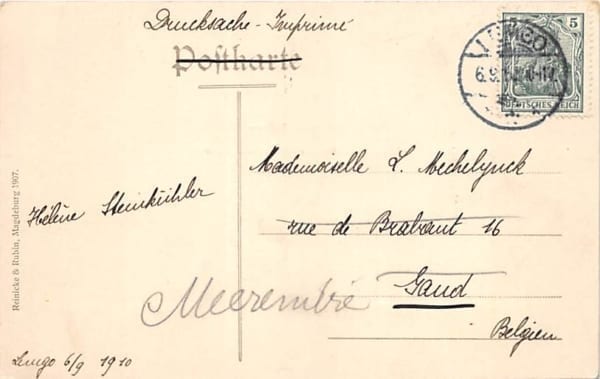 Drucksache - Imprimé
Postkarte
5
LEMGO
6.9.10
DEUTSCHES REICH
Mademoiselle L. Mechelynck
rue de Brabant 16
Gand
Belgien
Meerembre
Hélène Steinkühler
Lemgo 6/9 1910
Reinicke & Rubin, Magdeburg 1907.